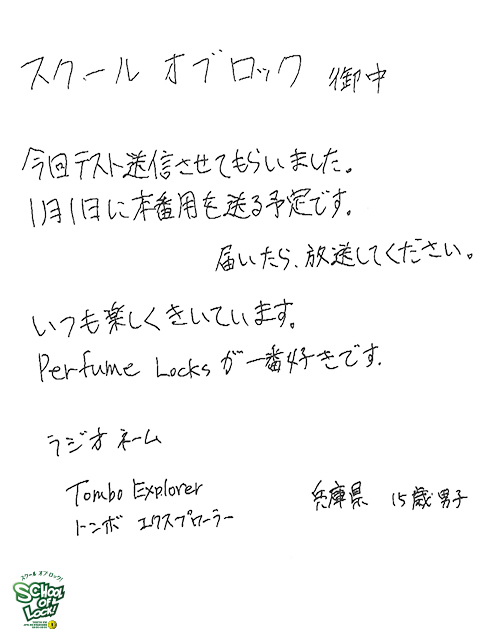 スクール オブ ロック 御中
今回テスト送信させてもらいました。
1月1日に本番用を送る予定です。
届いたら、放送してください。
いつも楽しくきいています。
Perfume Locksが一番好きです.
ラジオネーム
Tombo Explorer
トンボ エクスプローラー
兵庫県 15歳男子
スクール オブ ロック!
SCHOOL
OF
LOCK!